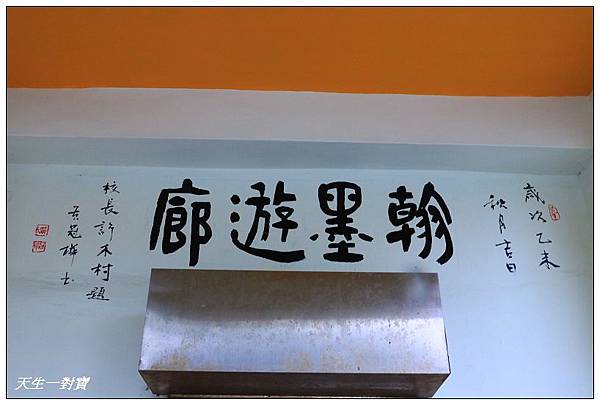 歲次乙未
秋月吉日
翰墨遊廊
校長許木村題
天生一對寶